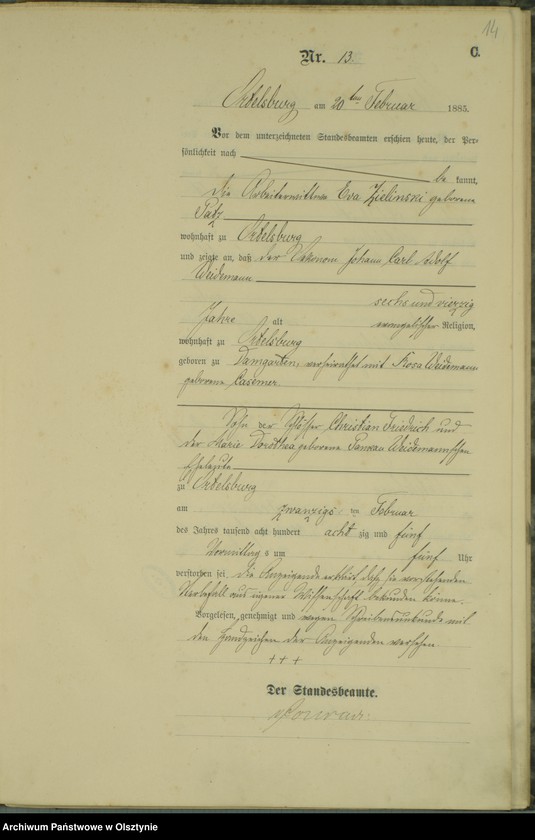 14
Nr. 13.
C.
Ortelsburg am 20ten Februar 1885.
Vor dem unterzeichneten Standesbeamten erschien heute, der Per-
sönlichkeit nach
be kannt,
die Arbeiterwittwe Eva Zielinski geborene
Patz
wohnhaft zu Ortelsburg
und zeigte an, daß der Oekonom Johann Carl Adolf
Weidemann
sechs und vierzig
Jahre alt evangelischer Religion,
wohnhaft zu Ortelsburg
geboren zu Damgarten, verheirathet mit Rosa Weidemann
geborene Casemer.
Sohn der Christian Friedrich und
der Marie Dorothea geborene Weidemannschen
Eheleute
zu Ortelsburg
am zwanzigs ten Februar
des Jahres tausend acht hundert acht zig und fünf
Vormittag s um fünf Uhr
verstorben sei. Die Anzeigende erklärt, daß sie vorstehenden
Sterbefall aus eigener Wissenschaft bekunden könne.
Vorgelesen, genehmigt und wegen Schreibensunkunde mit
den Handzeichen der Anzeigenden versehen.
+++
Der Standesbeamte.
Archiwum Państwowe w Olsztynie